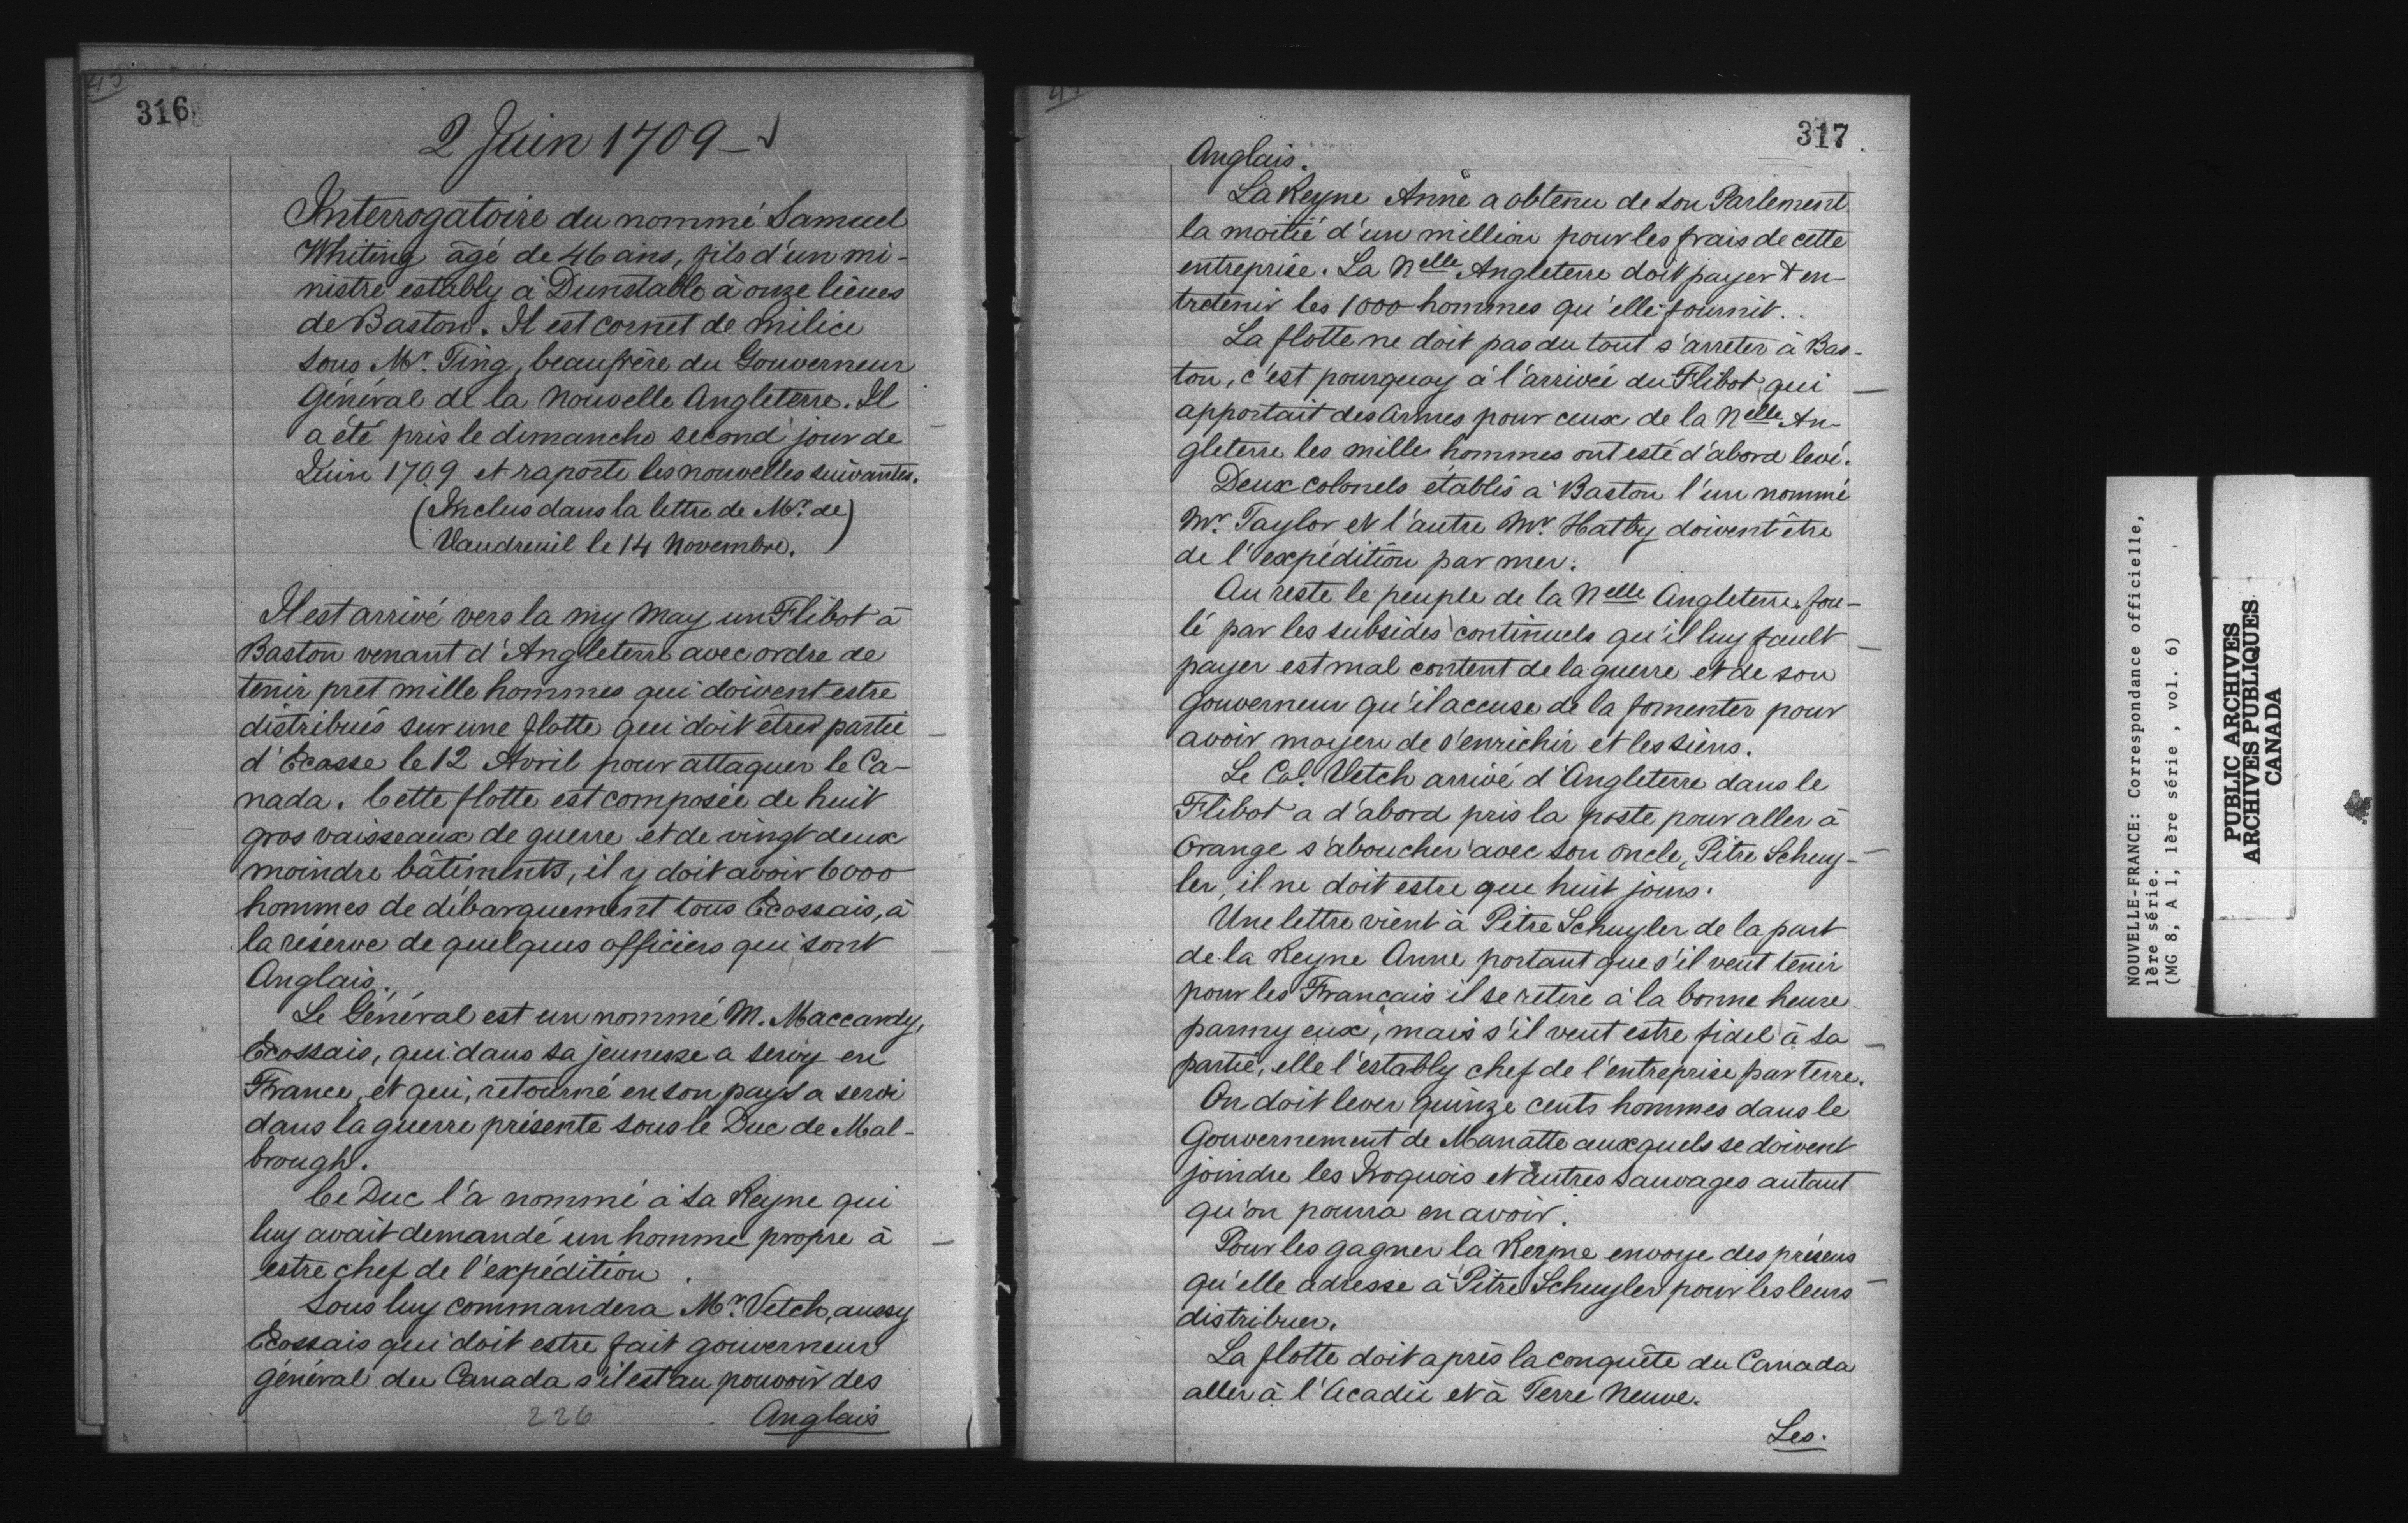 316
2 Juin 1709
Interrogatoire du nommé Samuel
Whiting âgé de 46 ans, fils d'un mi-
nistre estably à Dunstable à onze lieues
de Baston. Il est cornet de milice
sous Mr. Ting, beaufrère du Gouverneur
Général de la Nouvelle Angleterre. Il
a été pris le dimanche second jour de
Juin 1709 et raporte les nouvelles suivantes.
(Inclus dans la lettre de Mr. de)
(Vaudreuil le 14 Novembre.)
Il est arrivé vers la my May un Flibot à
Baston venant d'Angleterre avec ordre de
tenir pret mille hommes qui doivent estre
distribués sur une flotte qui doit être partie
d'Ecosse le 12 Avril pour attaquer le Ca-
nada. Cette flotte est composée de huit
gros vaisseaux de guerre et de vingt deux
moindre bâtiments, il y doit avoir 6000
hommes de débarquement tous Ecossais, à
la réserve de quelques officiers qui sont
Anglais.
Le Général est un nommé M. Maccardy,
Ecossais, qui dans sa jeunesse a servy en
France, et qui, retourné en son pays a servi
dans la guerre présente sous le Duc de Mal-
brough.
Ce Duc l'a nommé à la Reyne qui
luy avait demandé un homme propre à
estre chef de l'expédition.
Sous luy commandera Mr. Vetch, aussy
Ecossais qui doit estre fait gouverneur
général du Canada s'il est au pouvoir des
226
Anglais
317
Anglais.
La Reyne Anne a obtenu de son Parlement
la moitié d'un million pour les frais de cette
entreprise. La Nelle Angleterre doit payer & en-
tretenir les 1000 hommes qu'elle fournit.
La flotte ne doit pas du tout s'arreter à Bas-
ton, c'est pourquoy à l'arrivée du Flibot qui
apportait des armes pour ceux de la Nelle An-
gleterre les mille hommes ont esté d'abord levé.
Deux colonels établis à Baston l'un nommé
Mr. Taylor et l'autre Mr. Hatby doivent être
de l'expédition par mer.
Au reste le peuple de la Nelle Angleterre fou-
lé par les subsides continuels qu'il luy fault
payer est mal content de la guerre et de son
Gouverneur qu'il accuse de la fomenter pour
avoir moyen de s'enrichir et les siens.
Le Col. Vetch arrivé d'Angleterre dans le
Flibot a d'abord pris la poste pour aller à
Orange s'aboucher avec son oncle, Pitre Schuy-
ler, il ne doit estre que huit jours.
Une lettre vient à Pitre Schuyler de la part
de la Reyne Anne portant que s'il veut tenir
pour les Français il se retire à la bonne heure
parmy eux, mais s'il veut estre fidel à sa
partie, elle l'estably chef de l'entreprise par terre.
On doit lever quinze cents hommes dans le
Gouvernement de Manatte auxquels se doivent
joindre les Iroquois et autres sauvages autant
qu'on pourra en avoir.
Pour les gagner la Reyne envoye des présens
qu'elle adresse à Pitre Schuyler pour les leurs
distribuer.
La flotte doit après la conquête du Canada
aller à l'Acadie et à Terre Neuve.
Les.
NOUVELLE-FRANCE: Correspondance officielle,
1ère série.
(MG 8, A 1, 1ère série , vol. 6)
PUBLIC ARCHIVES
ARCHIVES PUBLIQUES
CANADA